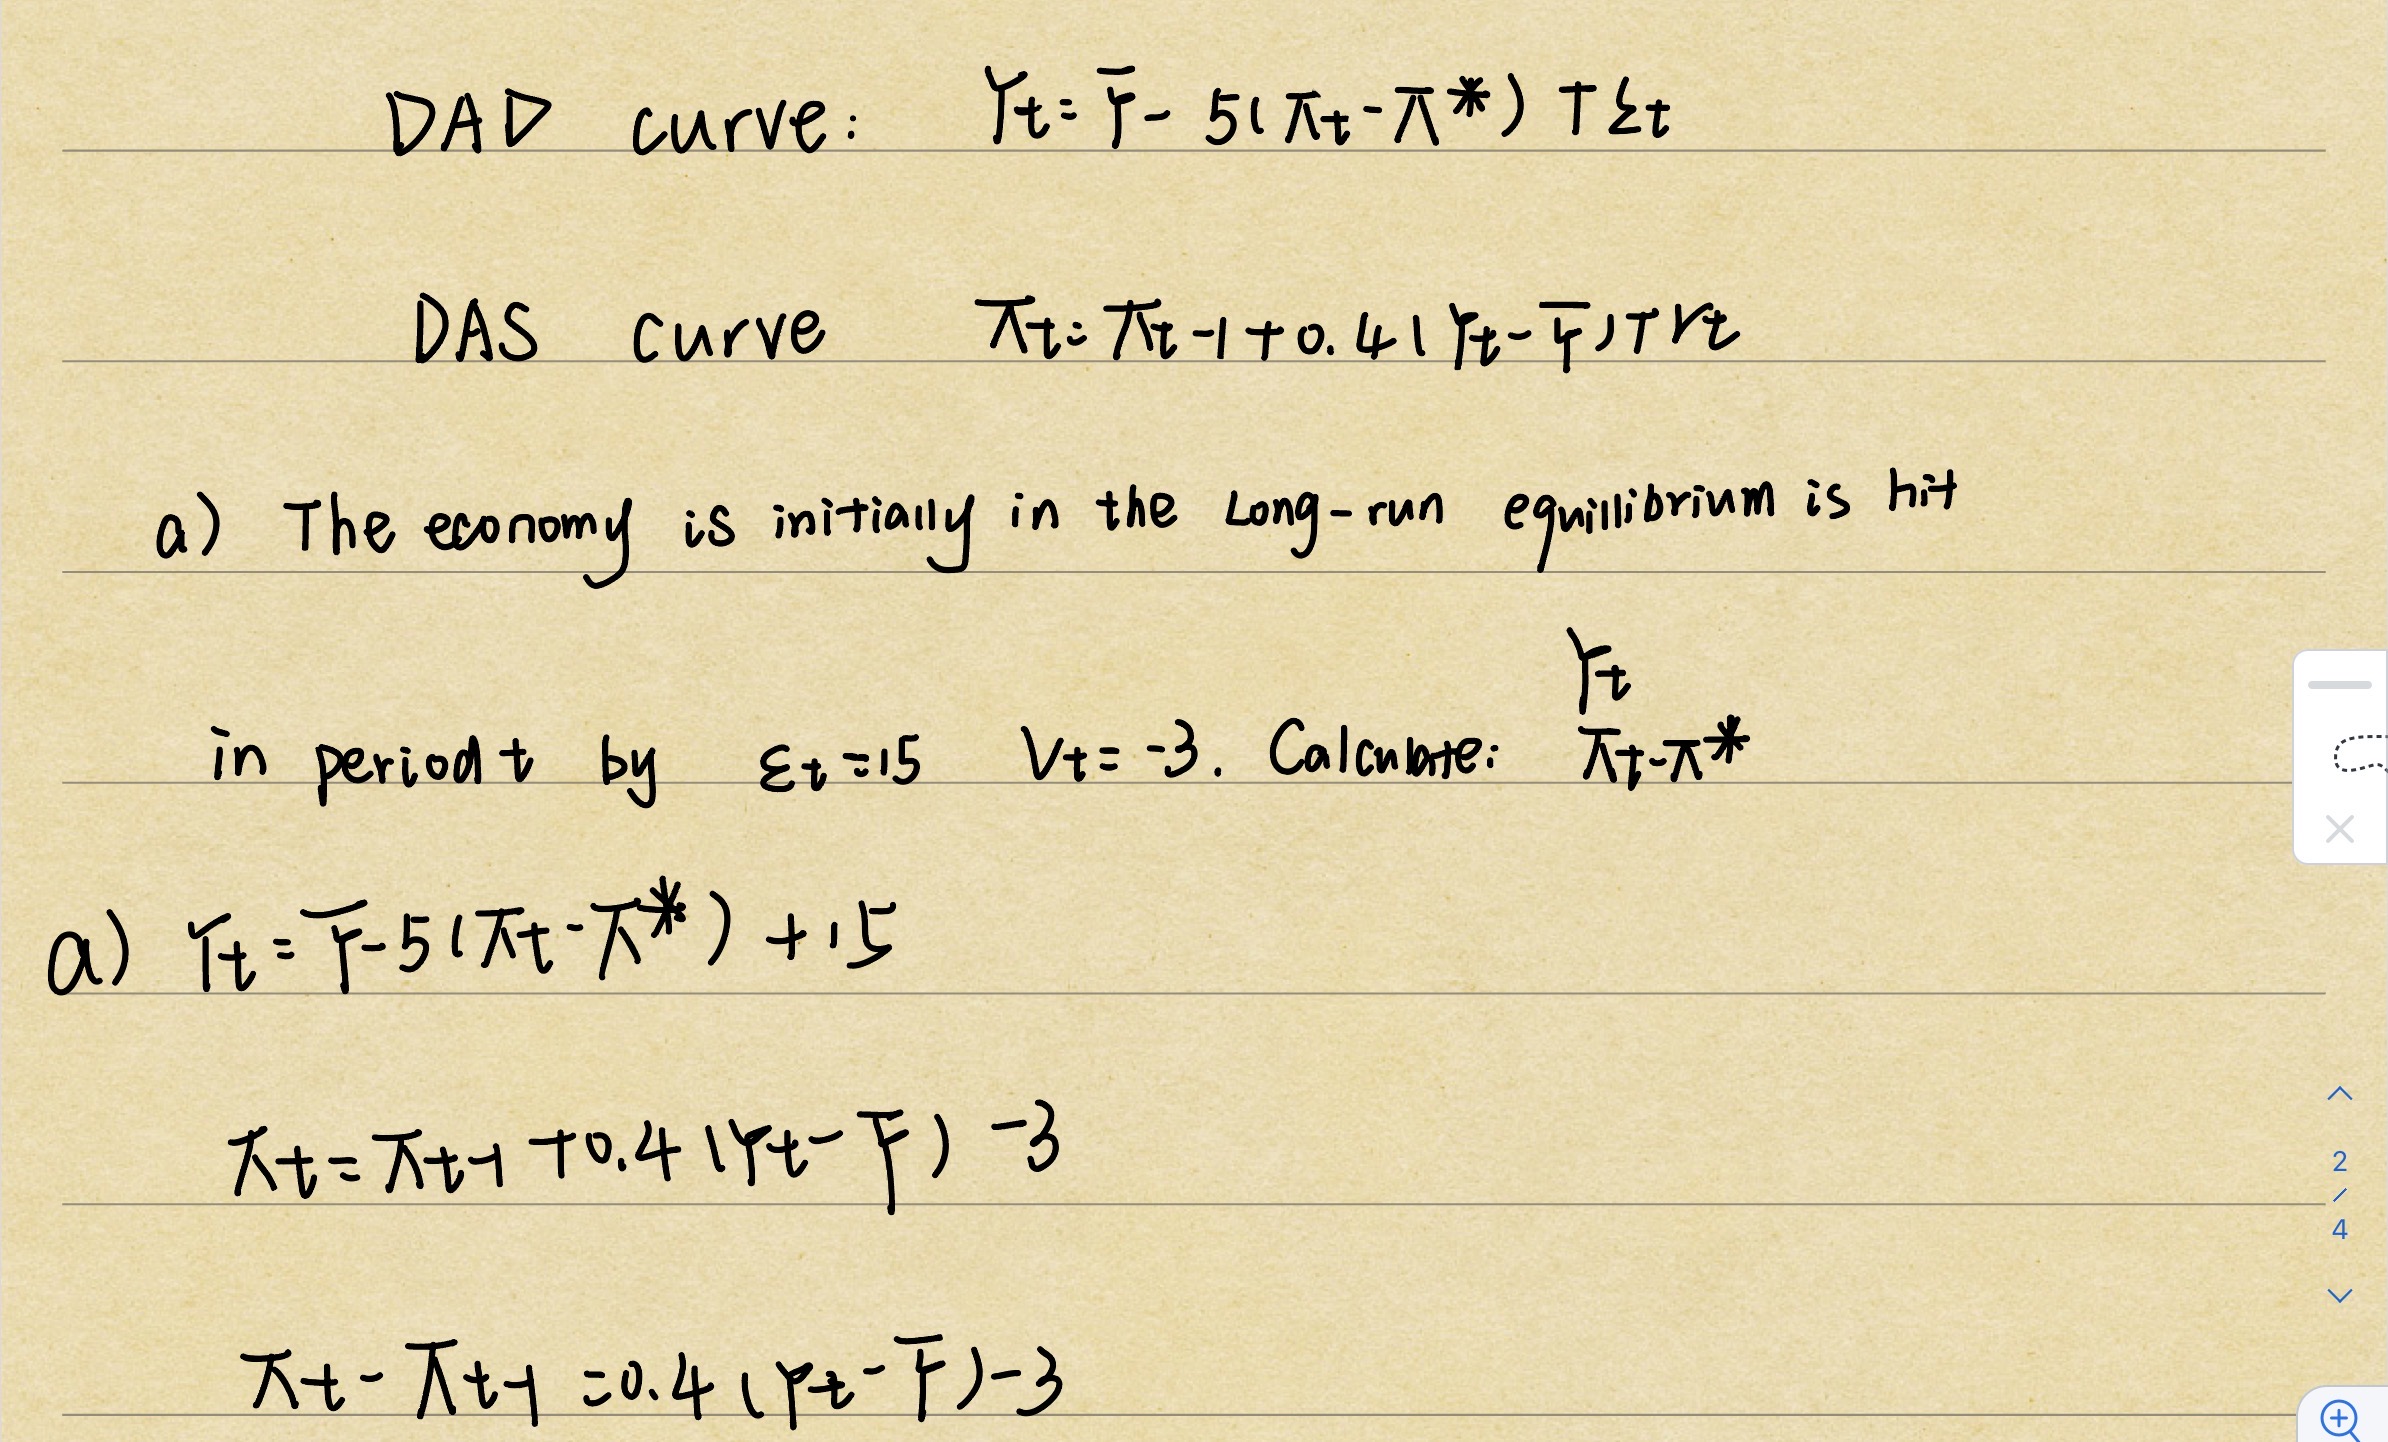 DAD curve: Yt = Y̅ - 5(πt - π*) + Σt
DAS curve πt = πt-1 + 0.4(Yt - Y̅) + Vt
a) The economy is initially in the Long-run equillibrium is hit
Yt
in period t by Ɛt = 15 Vt = -3. Calculate: πt - π*
a) Yt = Y̅ - 5(πt - π*) + 15
πt = πt-1 + 0.4(Yt - Y̅) - 3
πt - πt-1 = 0.4(Yt - Y̅) - 3
2
/
4